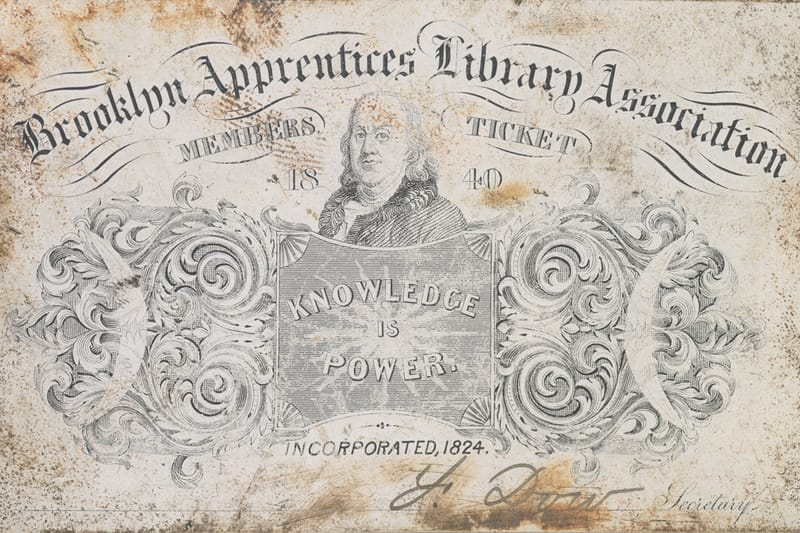 Brooklyn Apprentices Library Association
MEMBERS TICKET
18 40
KNOWLEDGE
IS
POWER.
INCORPORATED, 1824.
Dow Secretary.